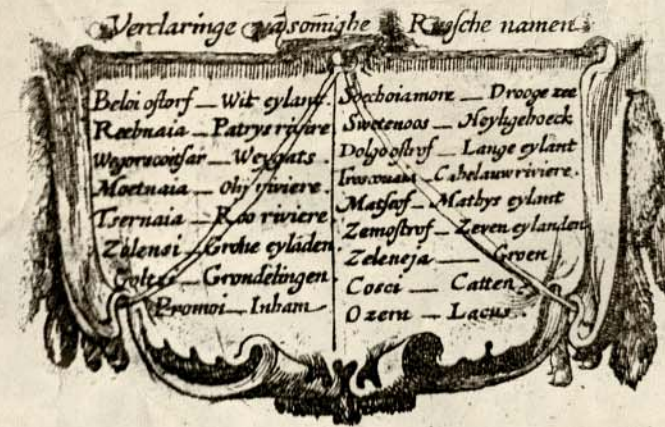 Verclaringe van som̃ighe Russche namen
Beloi ostorf — Wit eylant.
Reebnaia — Patrys riviere
Wegorscoitsar — Weygats.
Moetnaia — Olij riviere.
Tsernaia — Roo riviere
Zulensi — Grone eylãden
Goltzi — Grondelingen
Promoi — Inham
Soechoiamore — Drooge zee
Swetenoos — Heylighoeck
Dolgoostrof — Lange eylant
— Cabelauwriviere.
Matseof — Mathys eylant
Zemostrof — Zeven eylanden
Zeleneja — Groen
Cosci — Catten
Ozeru — Lacus.